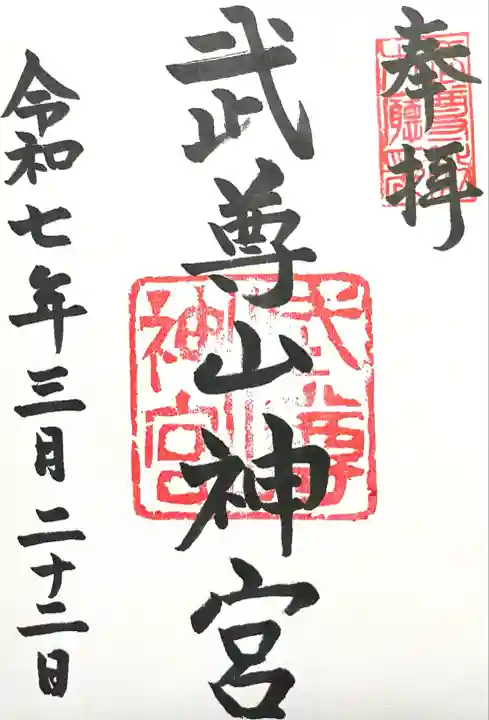 奉拝
武尊山神宮
武尊山神宮
令和七年三月二十二日